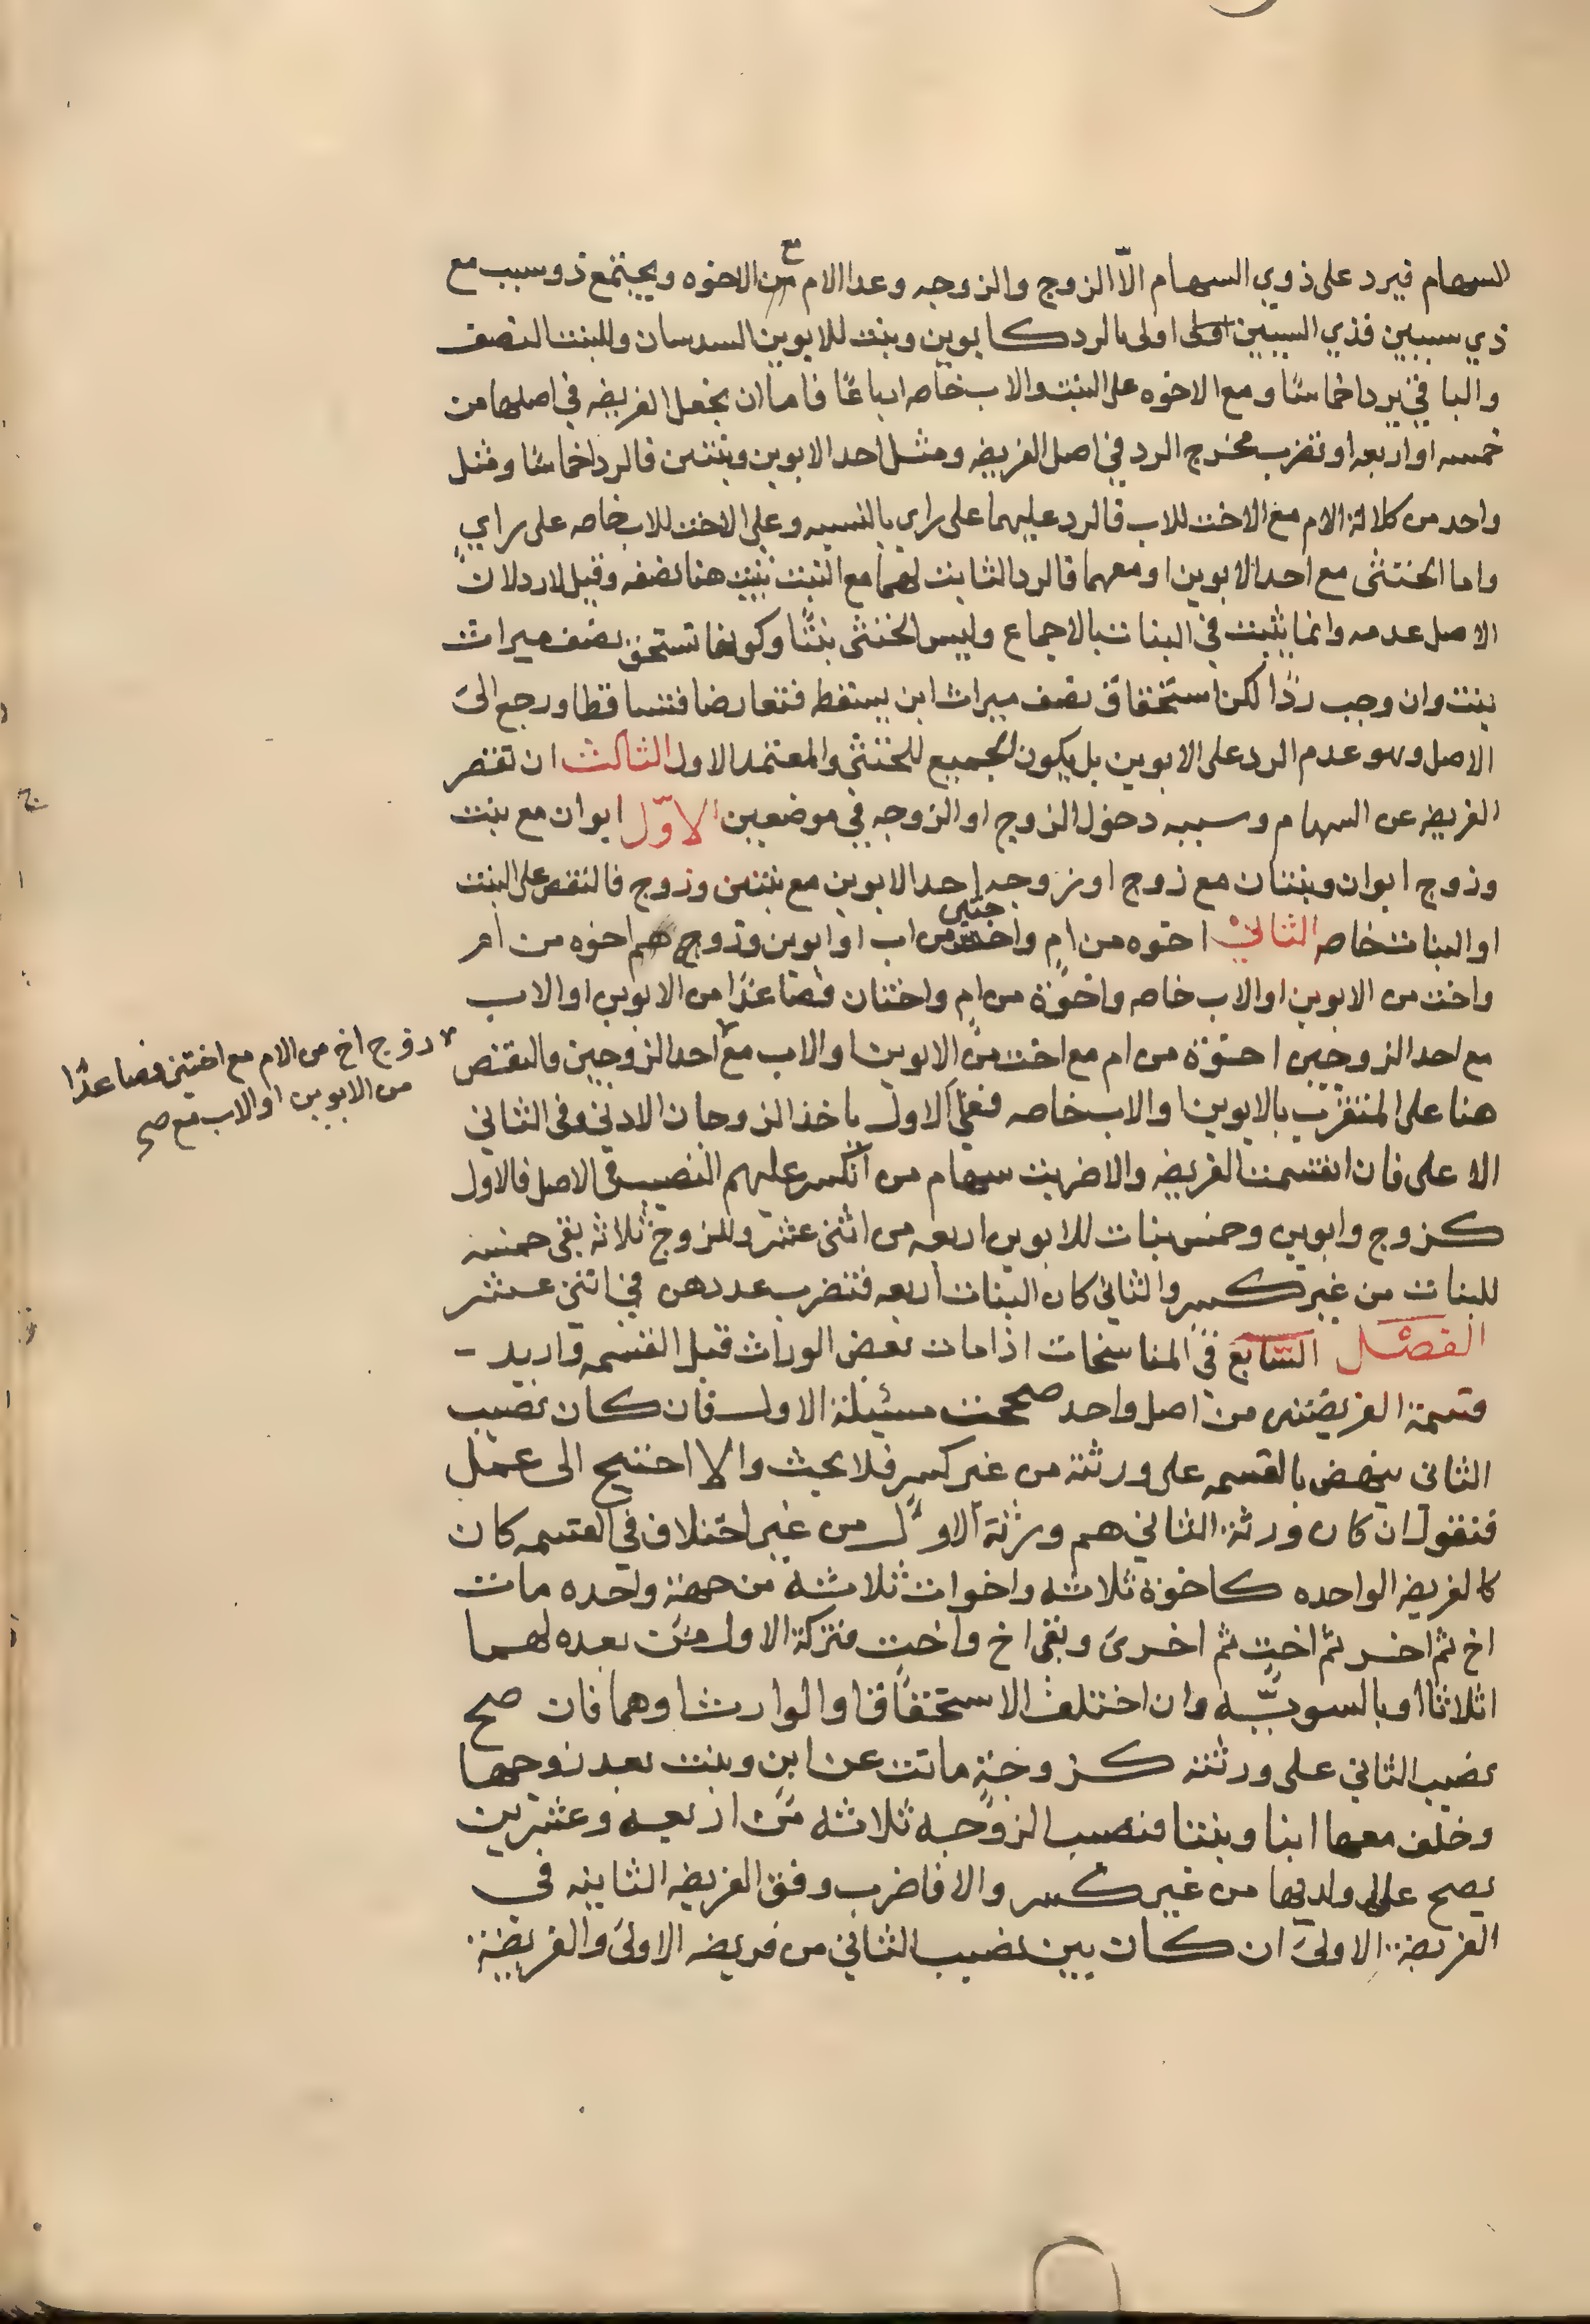 السهام فيرد على ذوي السهام الّا الزوج والزوجه وعدا الام مع من الاخوه ويجتمع ذو سبب مع
ذي سببين فذي السببين اولى اولى بالرد كابوين وبنت للابوين السدسان وللبنت النصف
والباقي يرد اخماسًا ومع الاخوه على البنت والاب خاصه ارباعًا فاما ان يجعل الفريضه في اصلها من
خمسه او اربعه او تضرب مخرج الرد في اصل الفريضه ومثل احد الابوين وبنتين فالرد اخماسًا ومثل
واحد من كلالة الام مع الاخت للاب فالرد عليهما على راي بالنسبه وعلى الاخت للاب خاصه على راي
واما الخنثى مع احد الابوين او معهما فالرد الثابت لهما مع البنت يثبت هنا نصفه وقيل لا رد لان
الاصل عدمه وانما يثبت في البنات بالاجماع وليس الخنثى بنتًا وكونها تستحق نصف ميراث
بنت وان وجب ردًا لكن استحقاق نصف ميراث ابن يسقطه فتعارضا فتساقطا ورجع الى
الاصل وهو عدم الرد على الابوين بل يكون الجميع للخنثى والمعتمد الاول الثالث ان تقصر
الفريضه عن السهام وسببه دخول الزوج او الزوجه في موضعين الاوّل ابوان مع بنت
وزوج ابوان وبنتان مع زوج او زوجه احد الابوين مع بنتين وزوج فالنقص على البنت
او البنات خاصه الثاني اخوه من ام واختين من اب او ابوين وزوج هم اخوه من ام
واخت من الابوين او الاب خاصه واخوة من ام واختان فصاعدًا من الابوين او الاب
مع احد الزوجين اخوة من ام مع اخت من الابوين او الاب مع احد الزوجين والنقص
زوج اخ من الام مع اختين فصاعدًا
من الابوين او الاب مع صح
هنا على المتقرب بالابوين او الاب خاصه ففي الاول ياخذ الزوجان الادنى وفى الثاني
الاعلى فان انقسمت الفريضه والا ضربت سهام من انكسر عليهم النصيب في الاصل فالاول
كزوج وابوين وخمس بنات للابوين اربعه من اثنى عشر وللزوج ثلاثه بقى خمسه
للبنات من غير كسر والثاني كان البنات اربعه فتضرب عددهن في اثني عشر
الفصل السّابع في المناسخات اذا مات بعض الوراث قبل القسمه واريد
قسمة الفريضتين من اصل واحد صححت مسئلة الاول فان كان نصيب
الثانى ينهض بالقسمه على ورثته من غير كسر فلا بحث والا احتيج الى عمل
فنقول ان كان ورثة الثاني هم ورثة الاوّل من غير اختلاف في القسمه كان
كالفريضه الواحده كاخوة ثلاثه واخوات ثلاثة من جهة واحده مات
اخ ثم اخر ثم اخت ثم اخرى وبقى اخ واخت فتركة الاول ومن بعده لهما
اثلاثا او بالسويّه وان اختلف الاستحقاق او الوارث او هما فان صح
نصيب الثاني على ورثته كزوجة ماتت عن ابن وبنت بعد زوجها
وخلف معها ابنا وبنتا فنصيب الزوجه ثلاثه من اربعه وعشرين
يصح على ولديها من غير كسر والا فاضرب وفق الفريضه الثانيه في
الفريضة الاولى ان كان بين نصيب الثاني من فريضه الاولى والفريضة